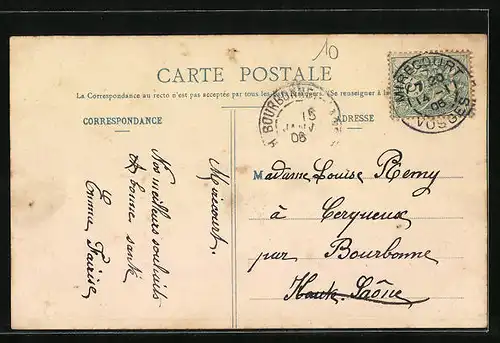 10
CARTE POSTALE
La Correspondance au recto n'est pas acceptée par tous les (Se renseigner à la
CORRESPONDANCE
ADRESSE
MIRECOURT
20
14 -1
06
VOSGES
BOURBONNE
15
JANV
06
Mirecourt.
Nos meilleurs souhaits
de bonne santé
Emma
Madame Louise Remy
à Cerqueux
par Bourbonne
Haute-Saône